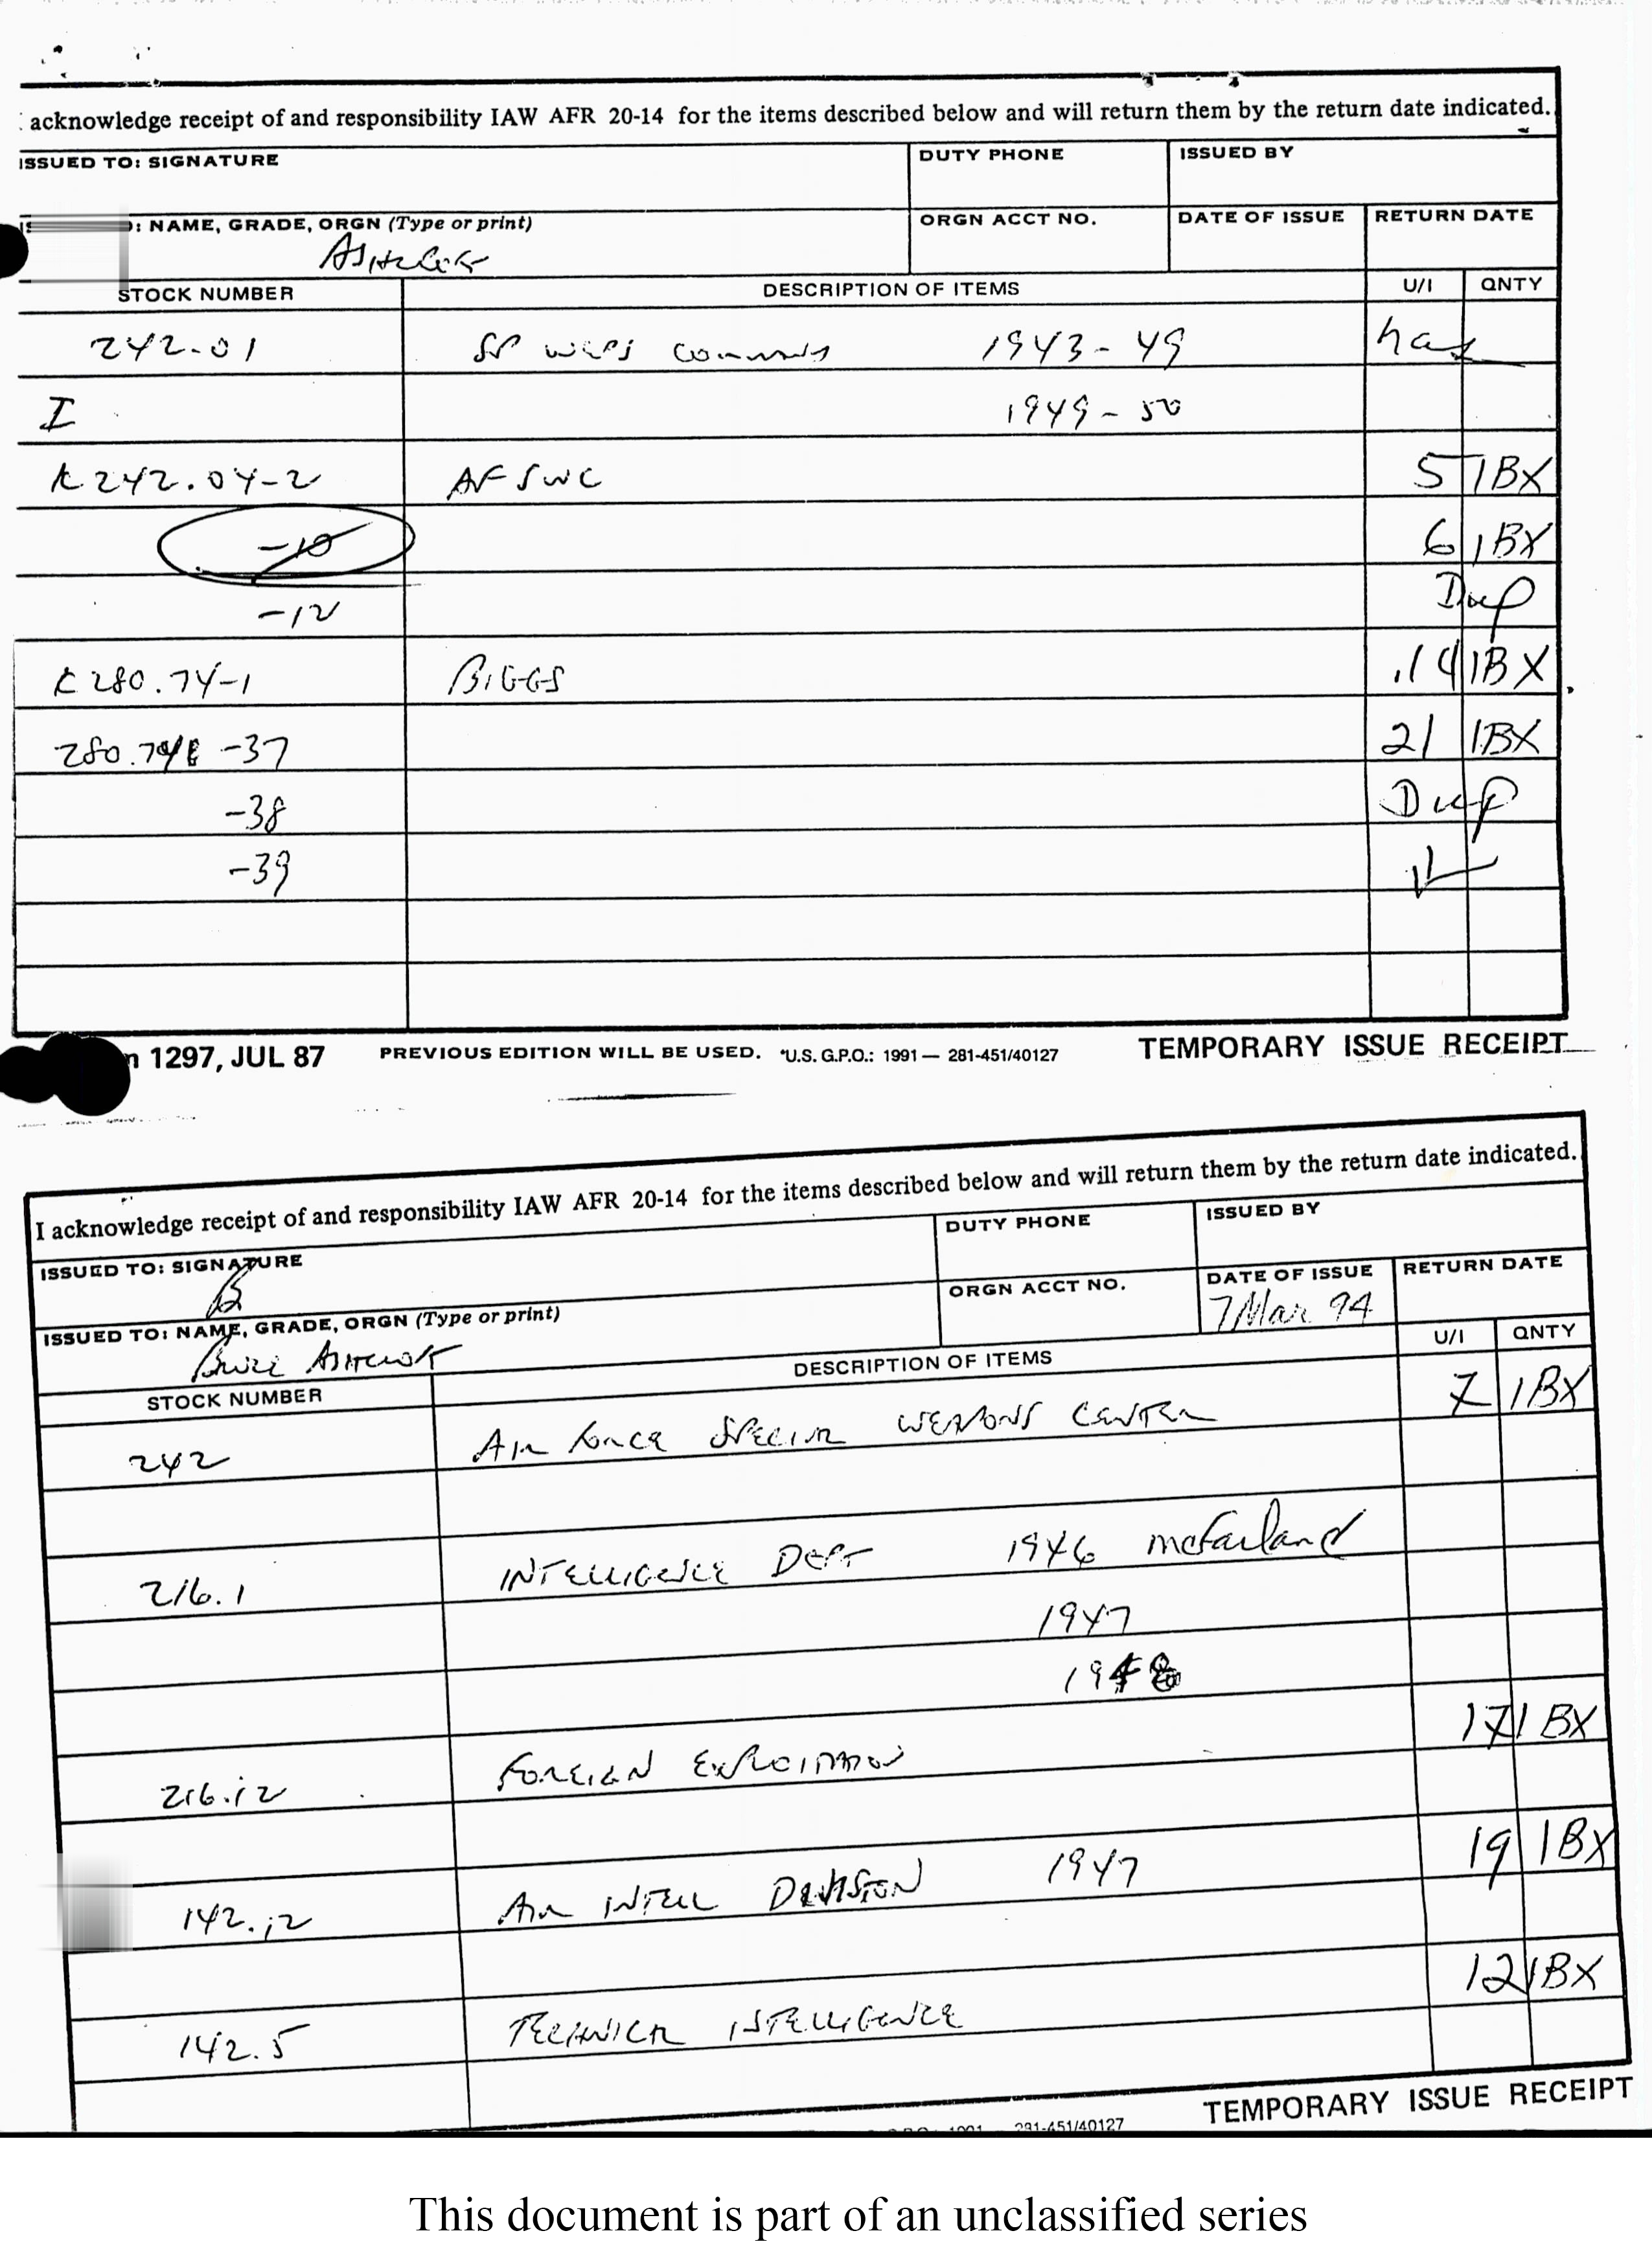 acknowledge receipt of and responsibility IAW AFR 20-14 for the items described below and will return them by the return date indicated.
ISSUED TO: SIGNATURE DUTY PHONE ISSUED BY
: NAME, GRADE, ORGN (Type or print) ORGN ACCT NO. DATE OF ISSUE RETURN DATE
STOCK NUMBER DESCRIPTION OF ITEMS U/I QNTY
242.01 1943-49 has
I 1949-50
K242.04-2 AFSWC 5 1BX
-10 6 1BX
-12 Dup
K280.74-1 BIGGS 14 1BX
-37 21 1BX
-38 Dup
-39
1297, JUL 87 PREVIOUS EDITION WILL BE USED. *U.S. G.P.O.: 1991 — 281-451/40127 TEMPORARY ISSUE RECEIPT
I acknowledge receipt of and responsibility IAW AFR 20-14 for the items described below and will return them by the return date indicated.
ISSUED TO: SIGNATURE DUTY PHONE ISSUED BY
ISSUED TO: NAME, GRADE, ORGN (Type or print) ORGN ACCT NO. DATE OF ISSUE RETURN DATE
Bruce Ashcroft 7 Mar 94
STOCK NUMBER DESCRIPTION OF ITEMS U/I QNTY
242 AIR FORCE SPECIAL WEAPONS CENTER 7 1BX
216.1 INTELLIGENCE DEPT 1946 McFarland
1947
1948
216.12 FOREIGN EXPLOITATION 17 1BX
142.12 AIR INTELL DIVISION 1947 19 1BX
142.5 TECHNICAL INTELLIGENCE 12 1BX
281-451/40127 TEMPORARY ISSUE RECEIPT
This document is part of an unclassified series